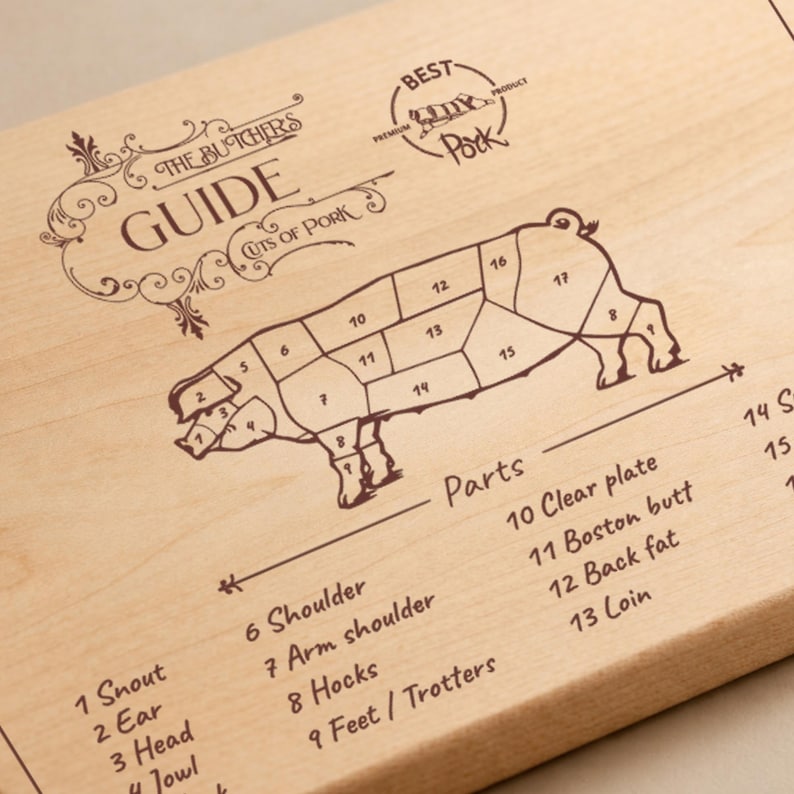 THE BUTCHER'S
GUIDE
CUTS OF PORK
BEST
PREMIUM
PRODUCT
Pork
1
2
3
4
5
6
7
8
9
10
11
12
13
14
15
16
17
8
9
Parts
1 Snout
2 Ear
3 Head
4 Jowl
6 Shoulder
7 Arm shoulder
8 Hocks
9 Feet / Trotters
10 Clear plate
11 Boston butt
12 Back fat
13 Loin
14
15